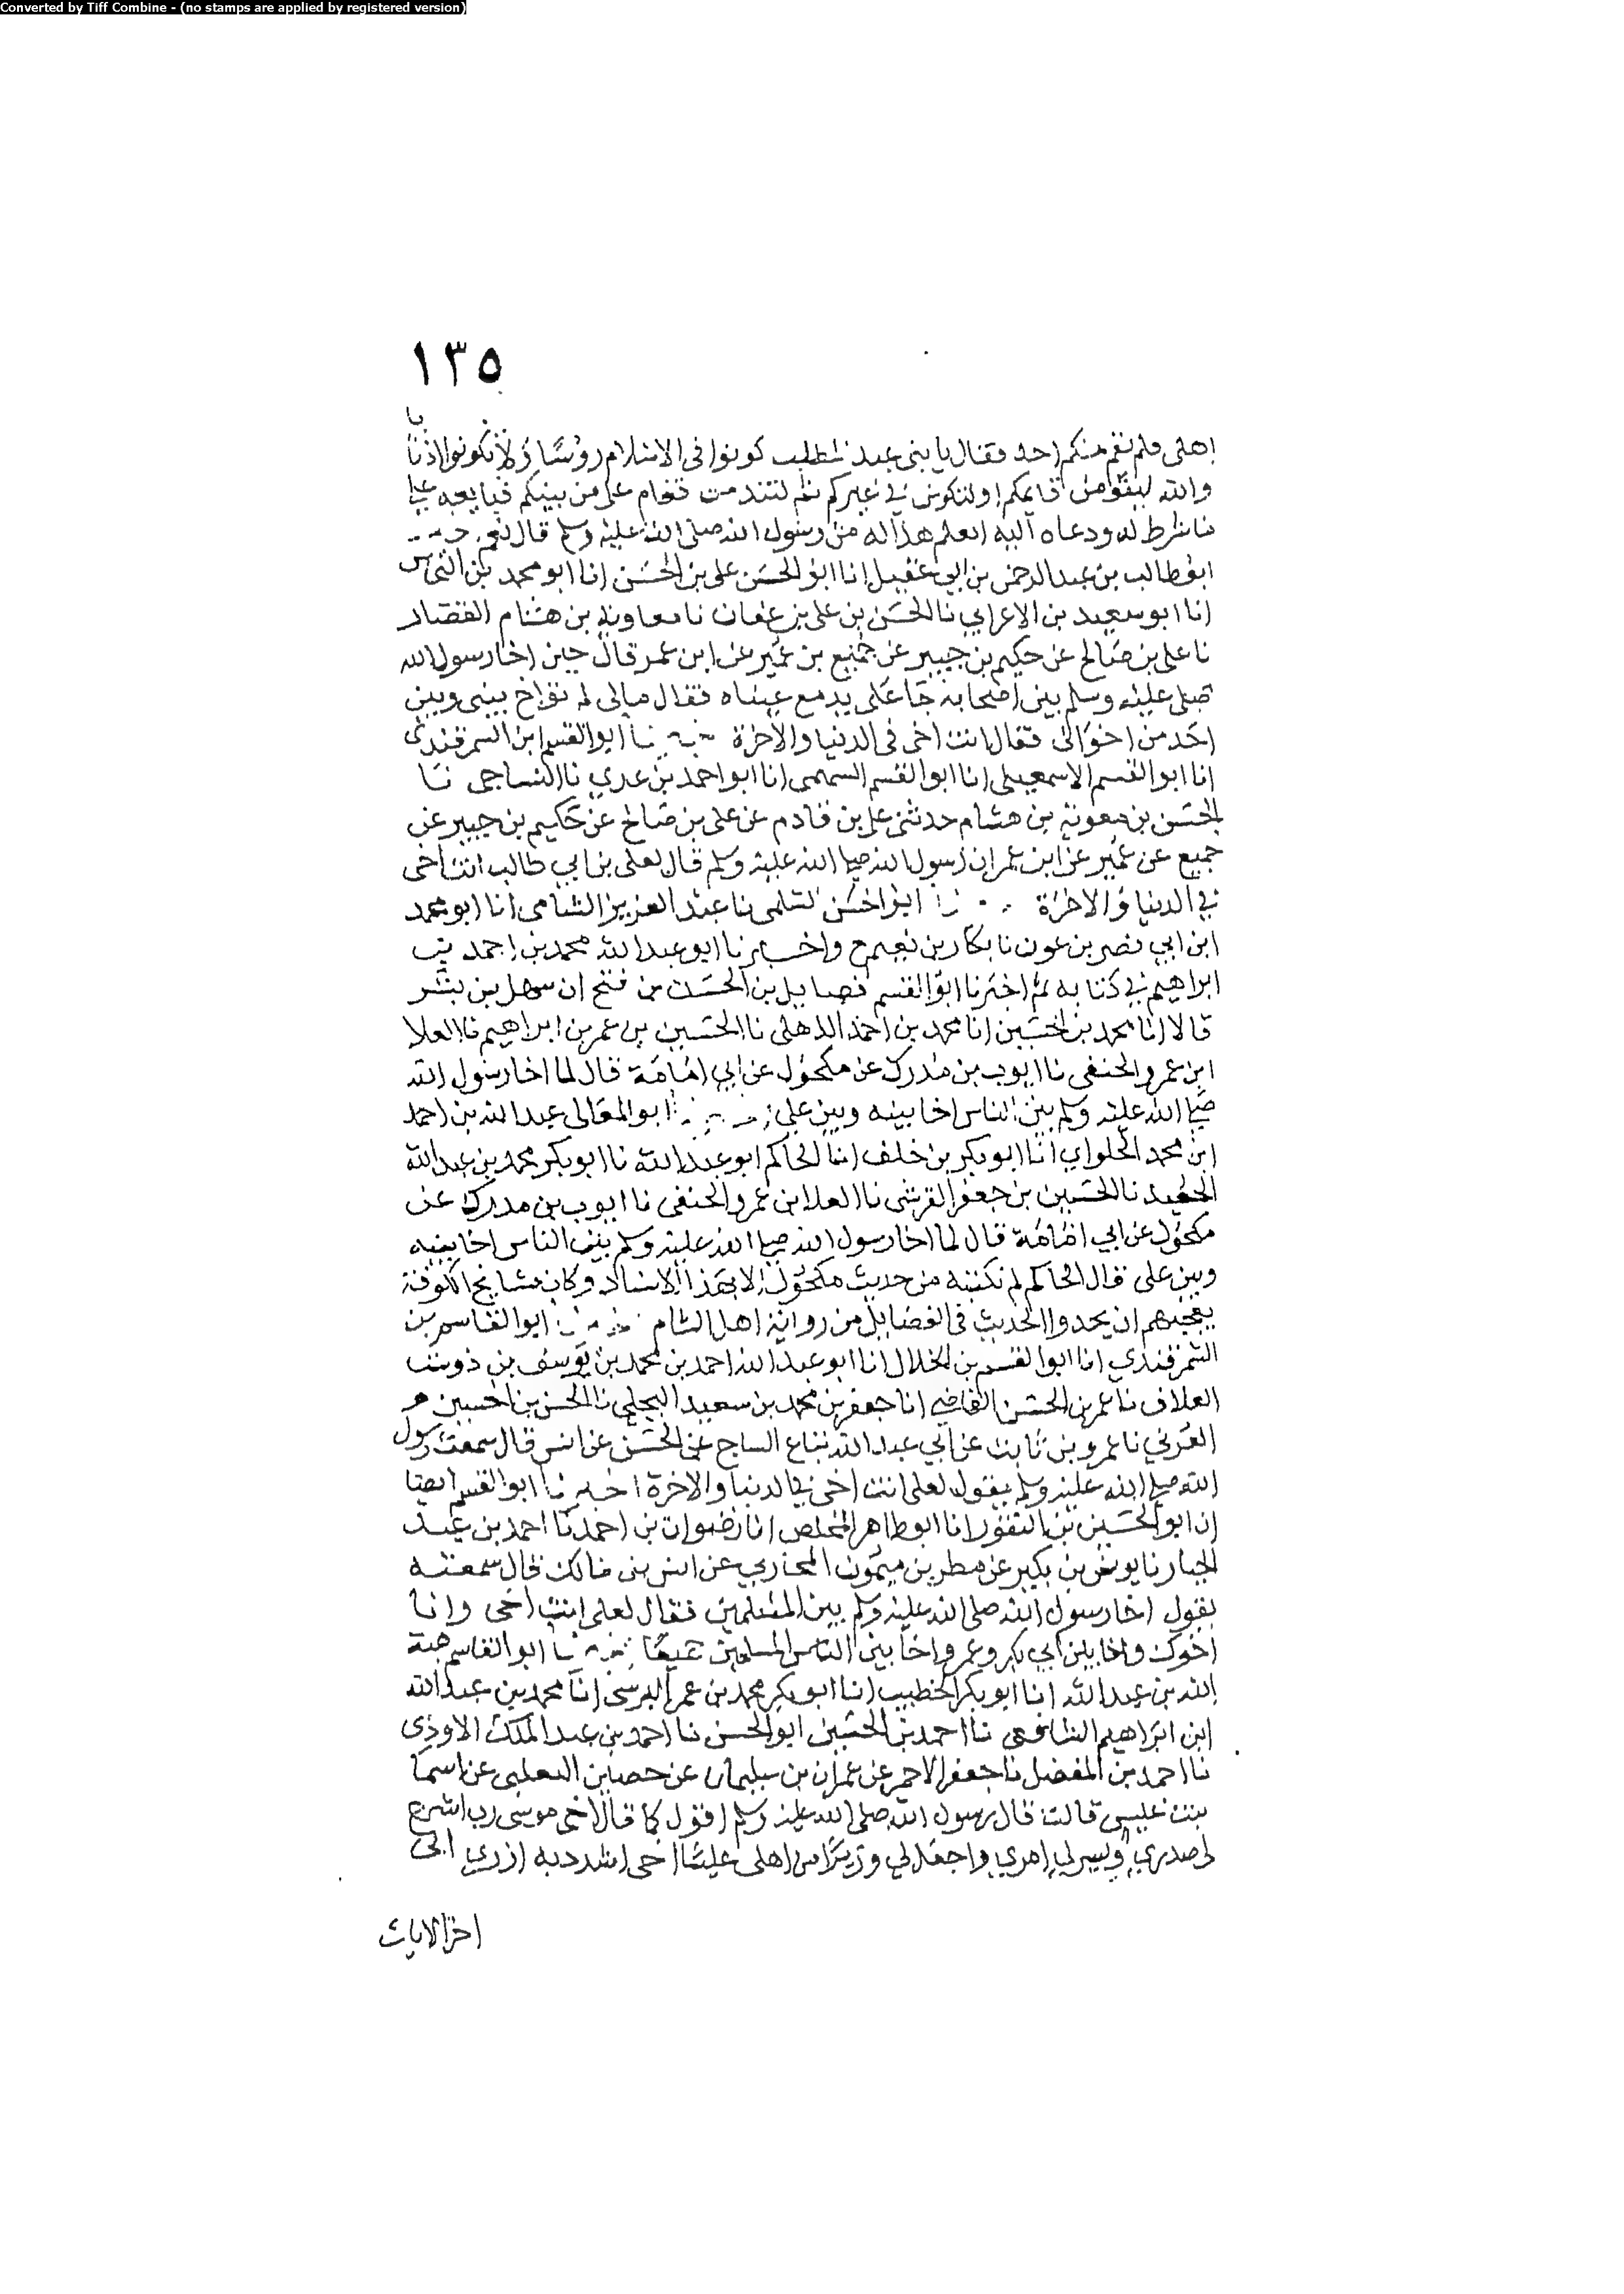 Converted by Tiff Combine - (no stamps are applied by registered version)
١٣٥
اهلى فلم يقم منكم احد فقال يا بنى عبد المطلب كونوا فى الاسلام رؤسًا ولا تكونوا اذنابا
والله ليقومن قائمكم او لتكونن في غيركم ثم لتندمن فقام على من بينهم فبايعه على
ما شرط له ودعاه اليه اتعلم هذا له من رسول الله صلى الله عليه وسلم قال نعم
ابو طالب بن عبد الرحمن بن ابي عقيل انا ابو الحسن على بن الحسن انا ابو محمد بن النحاس
انا ابو سعيد بن الاعرابي نا الحسن بن على بن عفان نا معاوية بن هشام القصار
نا على بن صالح عن حكيم بن جبير عن جميع بن عمير عن ابن عمر قال حين اخا رسول الله
صلى عليه وسلم بين اصحابه جا على يدمع عيناه فقال مالى لم تواخ بينى وبين
احد من اخوانى فقال انت اخى فى الدنيا والاخرة ابو القسم ابن السمرقندى
انا ابو القسم الاسمعيلى انا ابو القسم السهمى انا ابو احمد بن عدي نا الساجى نا
الحسن بن معوية بن هشام حدثنى على بن قادم عن على بن صالح عن حكيم بن جبير عن
جميع عن عمير عن ابن عمر ان رسول الله صلى الله عليه وسلم قال لعلى بن ابي طالب انت اخى
في الدنيا والاخرة ابو الحسن السلمى نا عبد العزيز الشامى انا ابو محمد
ابن ابي نصر بن عون نا بكار بن ح واخبرنا ابو عبد الله محمد بن احمد بن
ابراهيم في كتابه ثم اخبرنا ابو القسم فضايل بن الحسن بن فتح ان سهل بن بشر
قالا انا محمد بن الحسين انا محمد بن احمد الذهلى نا الحسين بن عمر بن ابراهيم نا العلا
ابن عمرو الحنفى نا ايوب بن مدرك عن مكحول عن ابي امامة قال لما اخا رسول الله
صلى الله عليه وسلم بين الناس اخا بينه وبين على ابو المعالى عبد الله بن احمد
ابن محمد الحلواي انا ابو بكر بن خلف انا الحاكم ابو عبد الله نا ابو بكر محمد بن عبد الله
الحفيد نا الحسين بن جعفر القرشى نا العلا بن عمرو الحنفى نا ايوب بن مدرك عن
مكحول عن ابي امامة قال لما اخا رسول الله صلى الله عليه وسلم بين الناس اخا بينه
وبين على قال الحاكم لم نكتبه من حديث مكحول الا بهذا الاسناد وكان مشايخ الكوفة
يعجبهم ان يجدوا الحديث فى الفضايل من رواية اهل الشام ابو القاسم بن
السمرقندي انا ابو القسم بن الخلال انا ابو عبد الله احمد بن محمد بن يوسف بن دوست
العلاف نا عمر بن الحسن القاضي انا جعفر بن محمد بن سعيد البجلي نا الحسن بن الحسين
العرني نا عمرو بن ثابت عن ابي عبد الله بياع الساج عن الحسن عن انس قال سمعت رسول
الله صلى الله عليه وسلم يقول لعلى انت اخى في الدنيا والاخرة اخبرنا ابو القسم ايضا
ان ابو الحسين بن النقور انا ابو طاهر المخلص انا رضوان بن احمد نا احمد بن عبد
الجبار نا يونس بن بكير عن مطر بن ميمون المحاربي عن انس بن مالك قال سمعته
يقول اخا رسول الله صلى الله عليه وسلم بين المسلمين فقال لعلى انت اخى وانا
اخوك واخا بين ابي بكر وعمر واخا بين الناس المسلمين جميعًا ابو القاسم هبة
الله بن عبد الله انا ابو بكر الخطيب انا ابو بكر محمد بن عمر البرسى انا محمد بن عبد الله
ابن ابراهيم الشافعى نا احمد بن الحسين ابو الحسن نا احمد بن عبد الملك الاودى
نا احمد بن المفضل نا جعفر الاحمر عن عمران بن سليمان عن حصين الثعلبى عن اسما
بنت عميس قالت قال رسول الله صلى الله عليه وسلم اقول كما قال اخى موسى رب اشرح
لى صدري ويسر لى امري واجعل لي وزيرًا من اهلى عليا اخى اشدد به ازري الى
اخر الايات